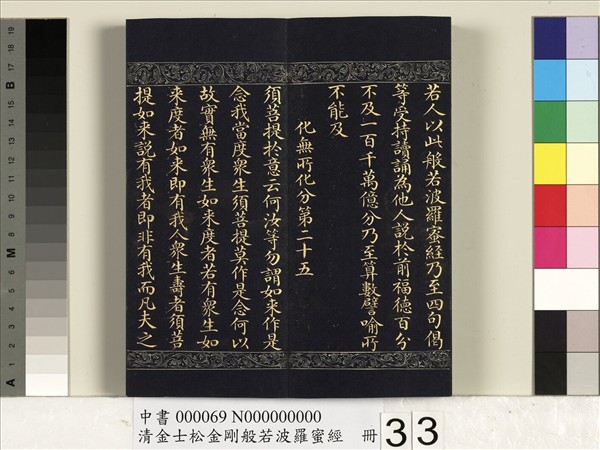 若人以此般若波羅蜜經乃至四句偈
等受持讀誦為他人說於前福德百分
不及一百千萬億分乃至算數譬喻所
不能及
化無所化分第二十五
須菩提於意云何汝等勿謂如來作是
念我當度衆生須菩提莫作是念何以
故實無有衆生如來度者若有衆生如
來度者如來即有我人衆生壽者須菩
提如來說有我者即非有我而凡夫之
中書 000069 N000000000
清金士松金剛般若波羅蜜經 冊
33
A 1 2 3 4 5 6 M 8 9 10 11 12 13 14 15 B 17 18 19